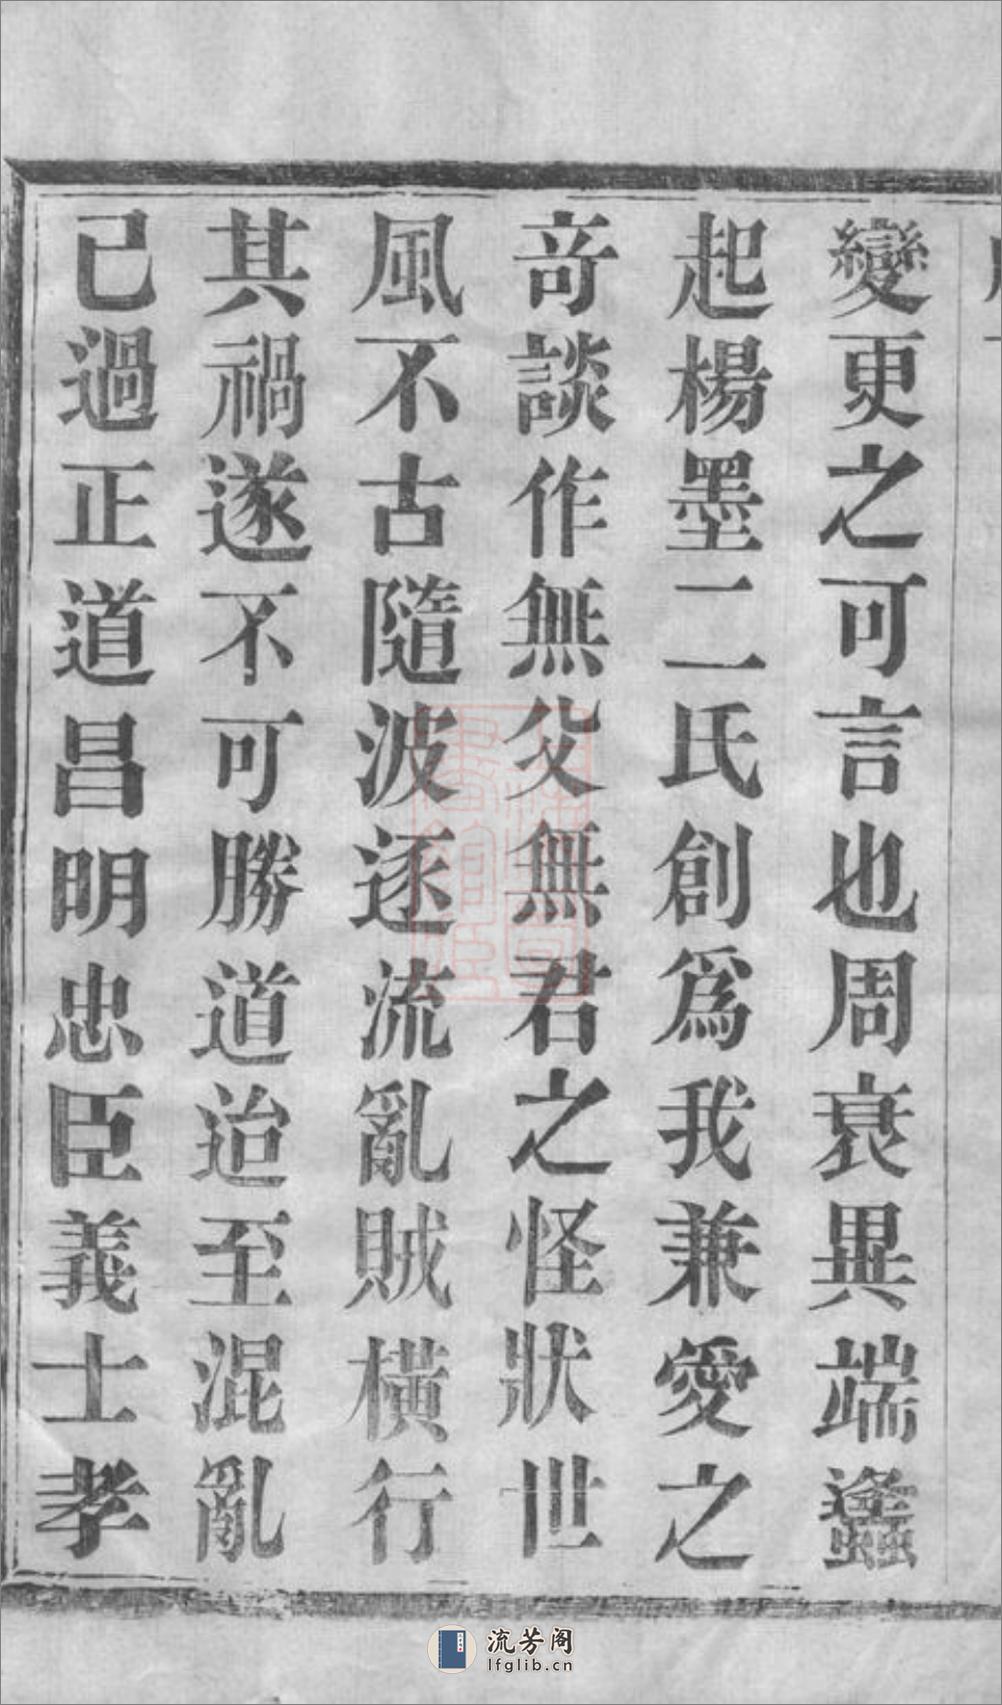 變更之可言也周衰異端蠭
起楊墨二氏創爲我兼愛之
竒談作無父無君之怪狀世
風不古隨波逐流亂賊橫行
其禍遂不可勝道迨至混亂
已過正道昌明忠臣義士孝
流芳阁
lfglib.cn